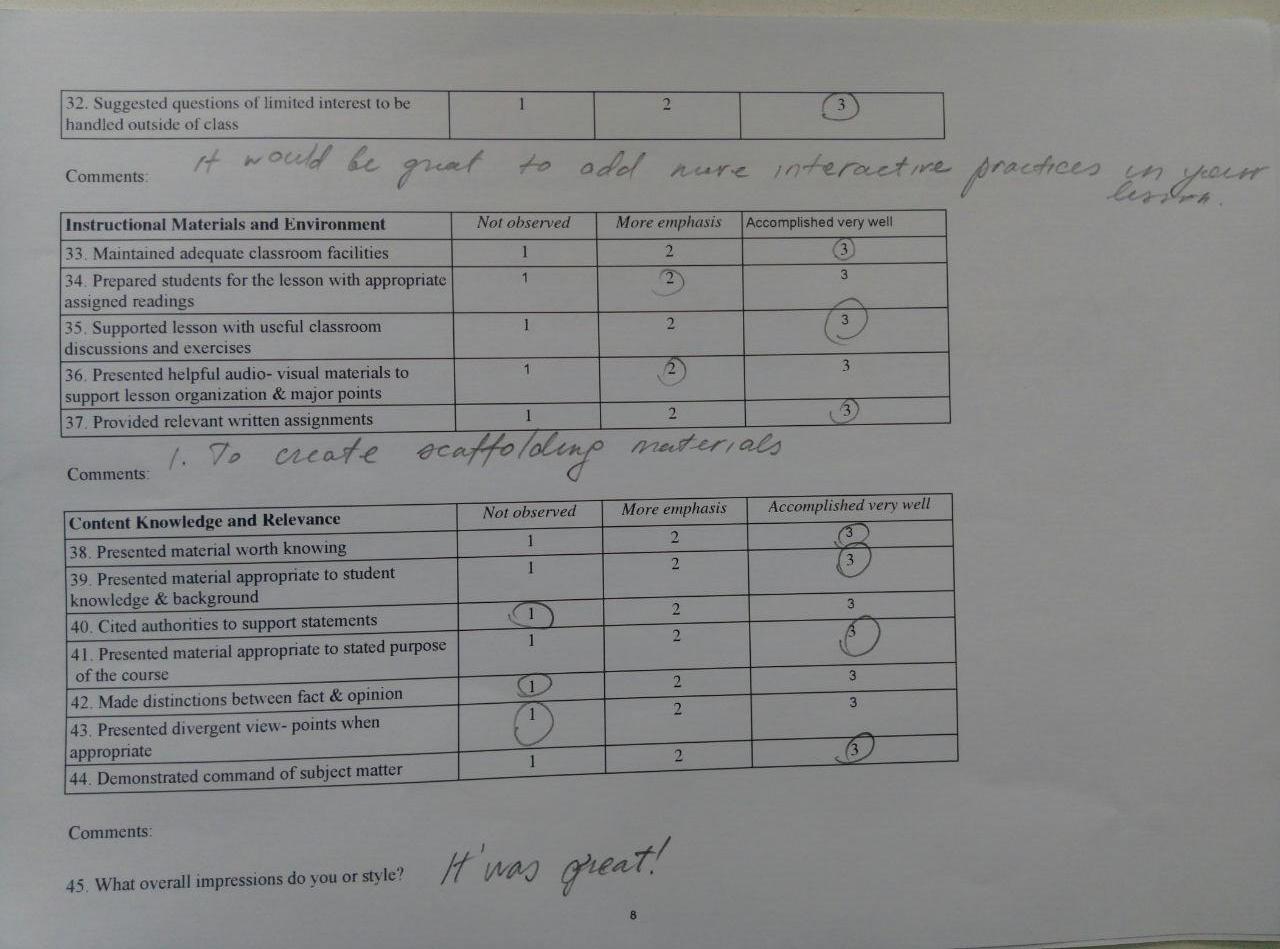 32. Suggested questions of limited interest to be 1 2 3
handled outside of class
Comments: It would be great to add more interactive practices in your
lesson.
Instructional Materials and Environment Not observed More emphasis Accomplished very well
33. Maintained adequate classroom facilities 1 2 3
34. Prepared students for the lesson with appropriate 1 2 3
assigned readings
35. Supported lesson with useful classroom 1 2 3
discussions and exercises
36. Presented helpful audio- visual materials to 1 2 3
support lesson organization & major points
37. Provided relevant written assignments 1 2 3
Comments: 1. To create scaffolding materials
Content Knowledge and Relevance Not observed More emphasis Accomplished very well
38. Presented material worth knowing 1 2 3
39. Presented material appropriate to student 1 2 3
knowledge & background
40. Cited authorities to support statements 1 2 3
41. Presented material appropriate to stated purpose 1 2 3
of the course
42. Made distinctions between fact & opinion 1 2 3
43. Presented divergent view- points when 1 2 3
appropriate
44. Demonstrated command of subject matter 1 2 3
Comments:
45. What overall impressions do you or style? It'was great!
8